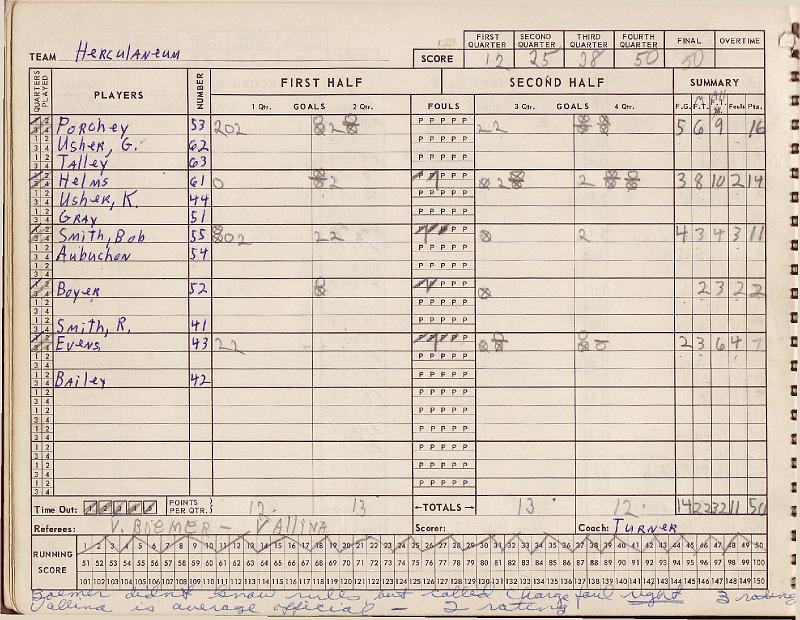 FIRST QUARTER SECOND QUARTER THIRD QUARTER FOURTH QUARTER FINAL OVERTIME
TEAM Herculaneum SCORE 12 25 38 50 50
QUARTERS PLAYED PLAYERS NUMBER FIRST HALF SECOND HALF SUMMARY
1 Qtr. GOALS 2 Qtr. FOULS 3 Qtr. GOALS 4 Qtr. F.G. F.T. F.T. Fouls Pts.
Porchey 53 2 0 2 P P P P P 2 2 5 6 9 16
Usher, G. 62 P P P P P
Talley 63 P P P P P
Helms 61 0 2 2 3 8 10 2 14
Usher, K. 44 P P P P P
Gray 51 P P P P P
Smith, Bob 55 0 2 2 2 2 4 3 4 3 11
Aubuchon 54 P P P P P
P P P P P
Boyer 52 2 3 2 2
P P P P P
Smith, R. 41 P P P P P
Evens 43 2 2 2 3 6 4 7
P P P P P
Bailey 42 P P P P P
P P P P P
P P P P P
P P P P P
P P P P P
P P P P P
P P P P P
Time Out: 1 2 3 4 5 POINTS PER QTR. 12 13 ←TOTALS→ 13 12 14 22 32 11 50
Referees: V. Bremer - Vallina Scorer: Coach: Turner
RUNNING SCORE
1 2 3 4 5 6 7 8 9 10 11 12 13 14 15 16 17 18 19 20 21 22 23 24 25 26 27 28 29 30 31 32 33 34 35 36 37 38 39 40 41 42 43 44 45 46 47 48 49 50
51 52 53 54 55 56 57 58 59 60 61 62 63 64 65 66 67 68 69 70 71 72 73 74 75 76 77 78 79 80 81 82 83 84 85 86 87 88 89 90 91 92 93 94 95 96 97 98 99 100
101 102 103 104 105 106 107 108 109 110 111 112 113 114 115 116 117 118 119 120 121 122 123 124 125 126 127 128 129 130 131 132 133 134 135 136 137 138 139 140 141 142 143 144 145 146 147 148 149 150
Bremer didnt know rules but called charge foul right 3 rating
Vallina is average official - 2 rating